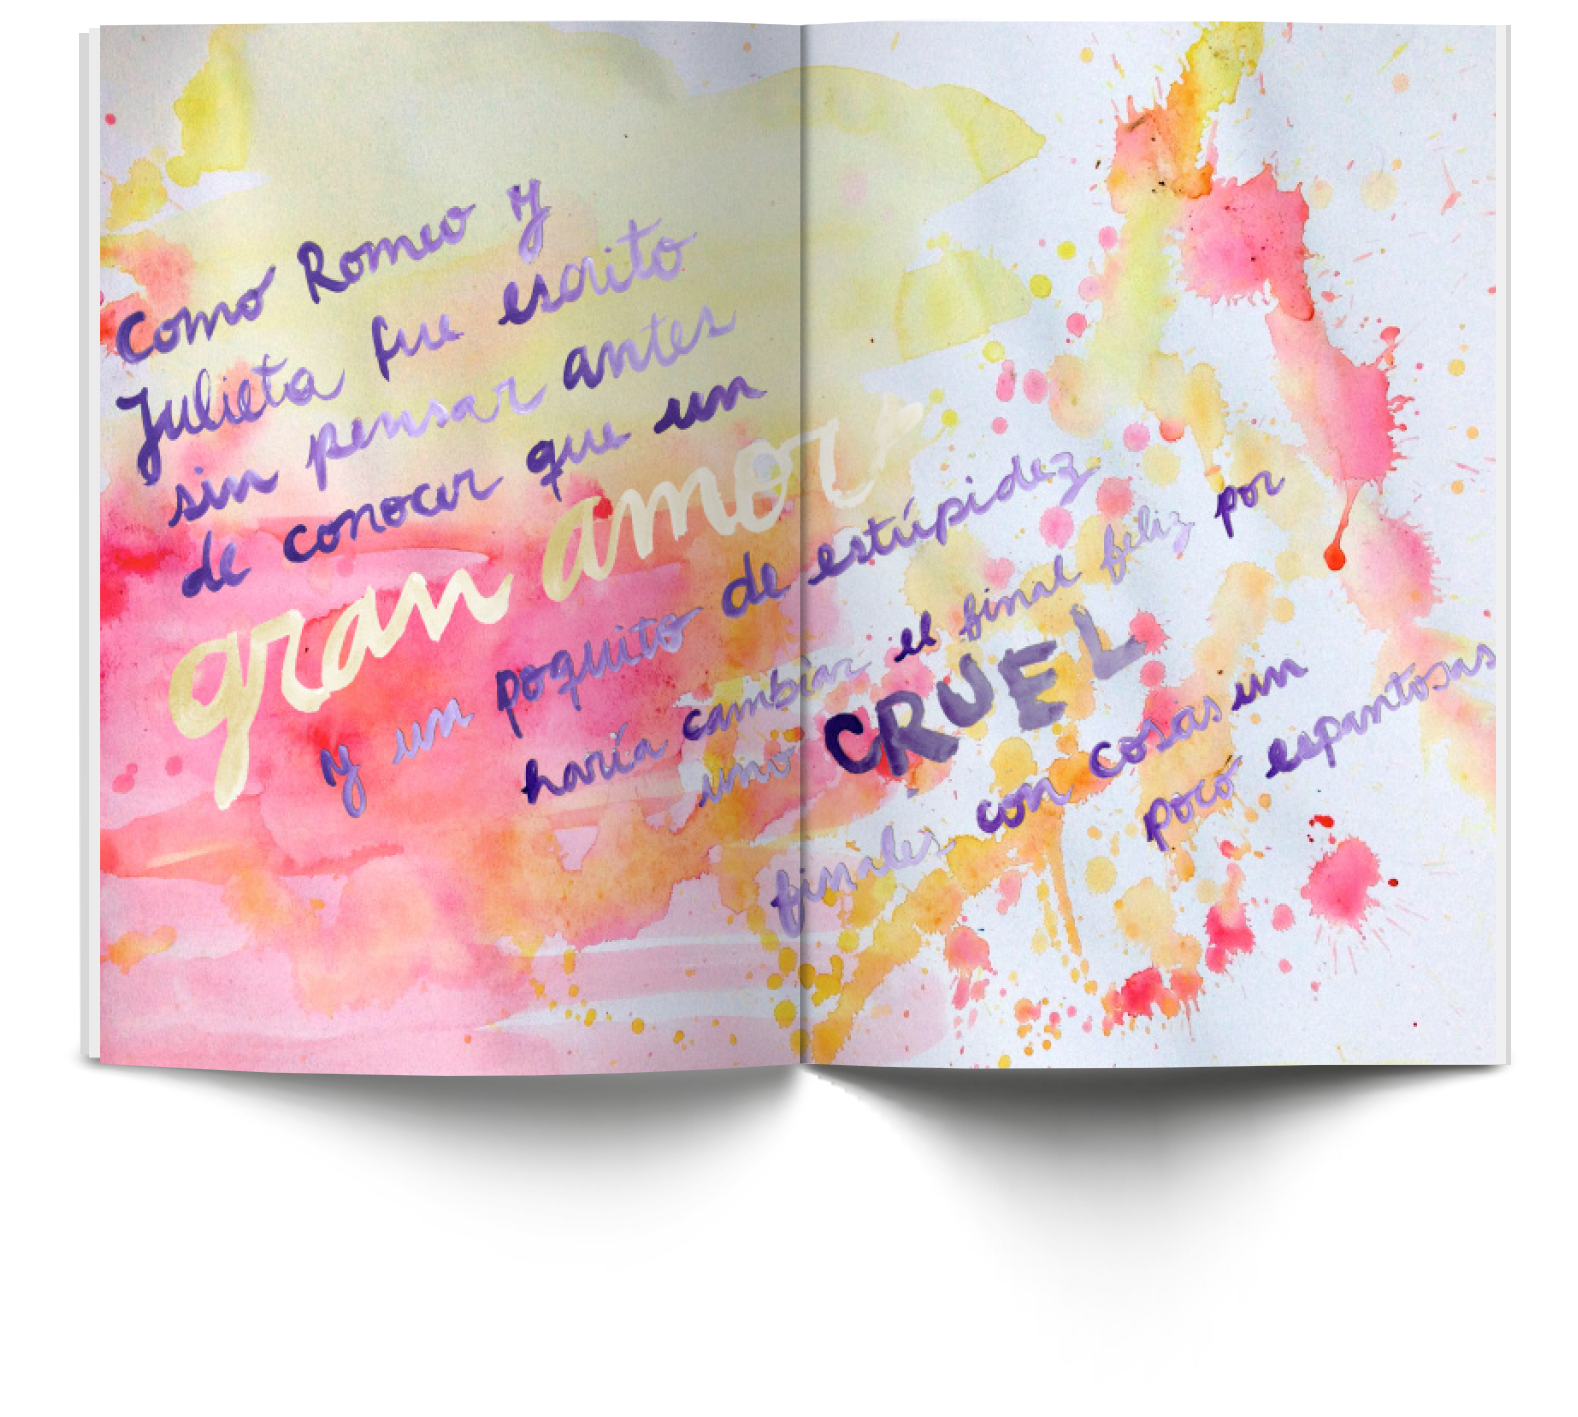 Como Romeo y
Julieta fue escrito
sin pensar antes
de conocer que un
gran amor
y un poquito de estúpidez
haría cambiar el final feliz por
uno CRUEL
finales con cosas un
poco espantosas